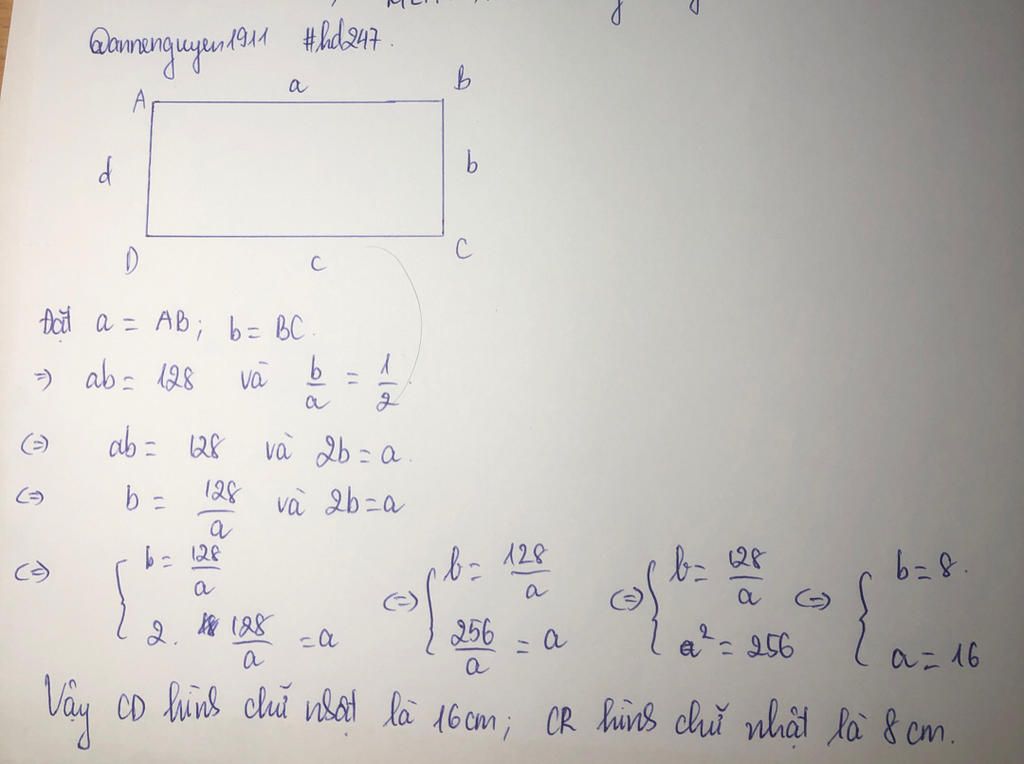 @annenguyen1911 #hd247.
a
A B
d b
D c C
Đặt a = AB; b = BC.
=> ab = 128 và b/a = 1/2.
<=> ab = 128 và 2b = a.
<=> b = 128/a và 2b = a
<=> { b = 128/a <=> { b = 128/a <=> { b = 128/a <=> { b = 8.
2. 128/a = a 256/a = a a² = 256 a = 16
Vậy CD hình chữ nhật là 16cm; CR hình chữ nhật là 8cm.